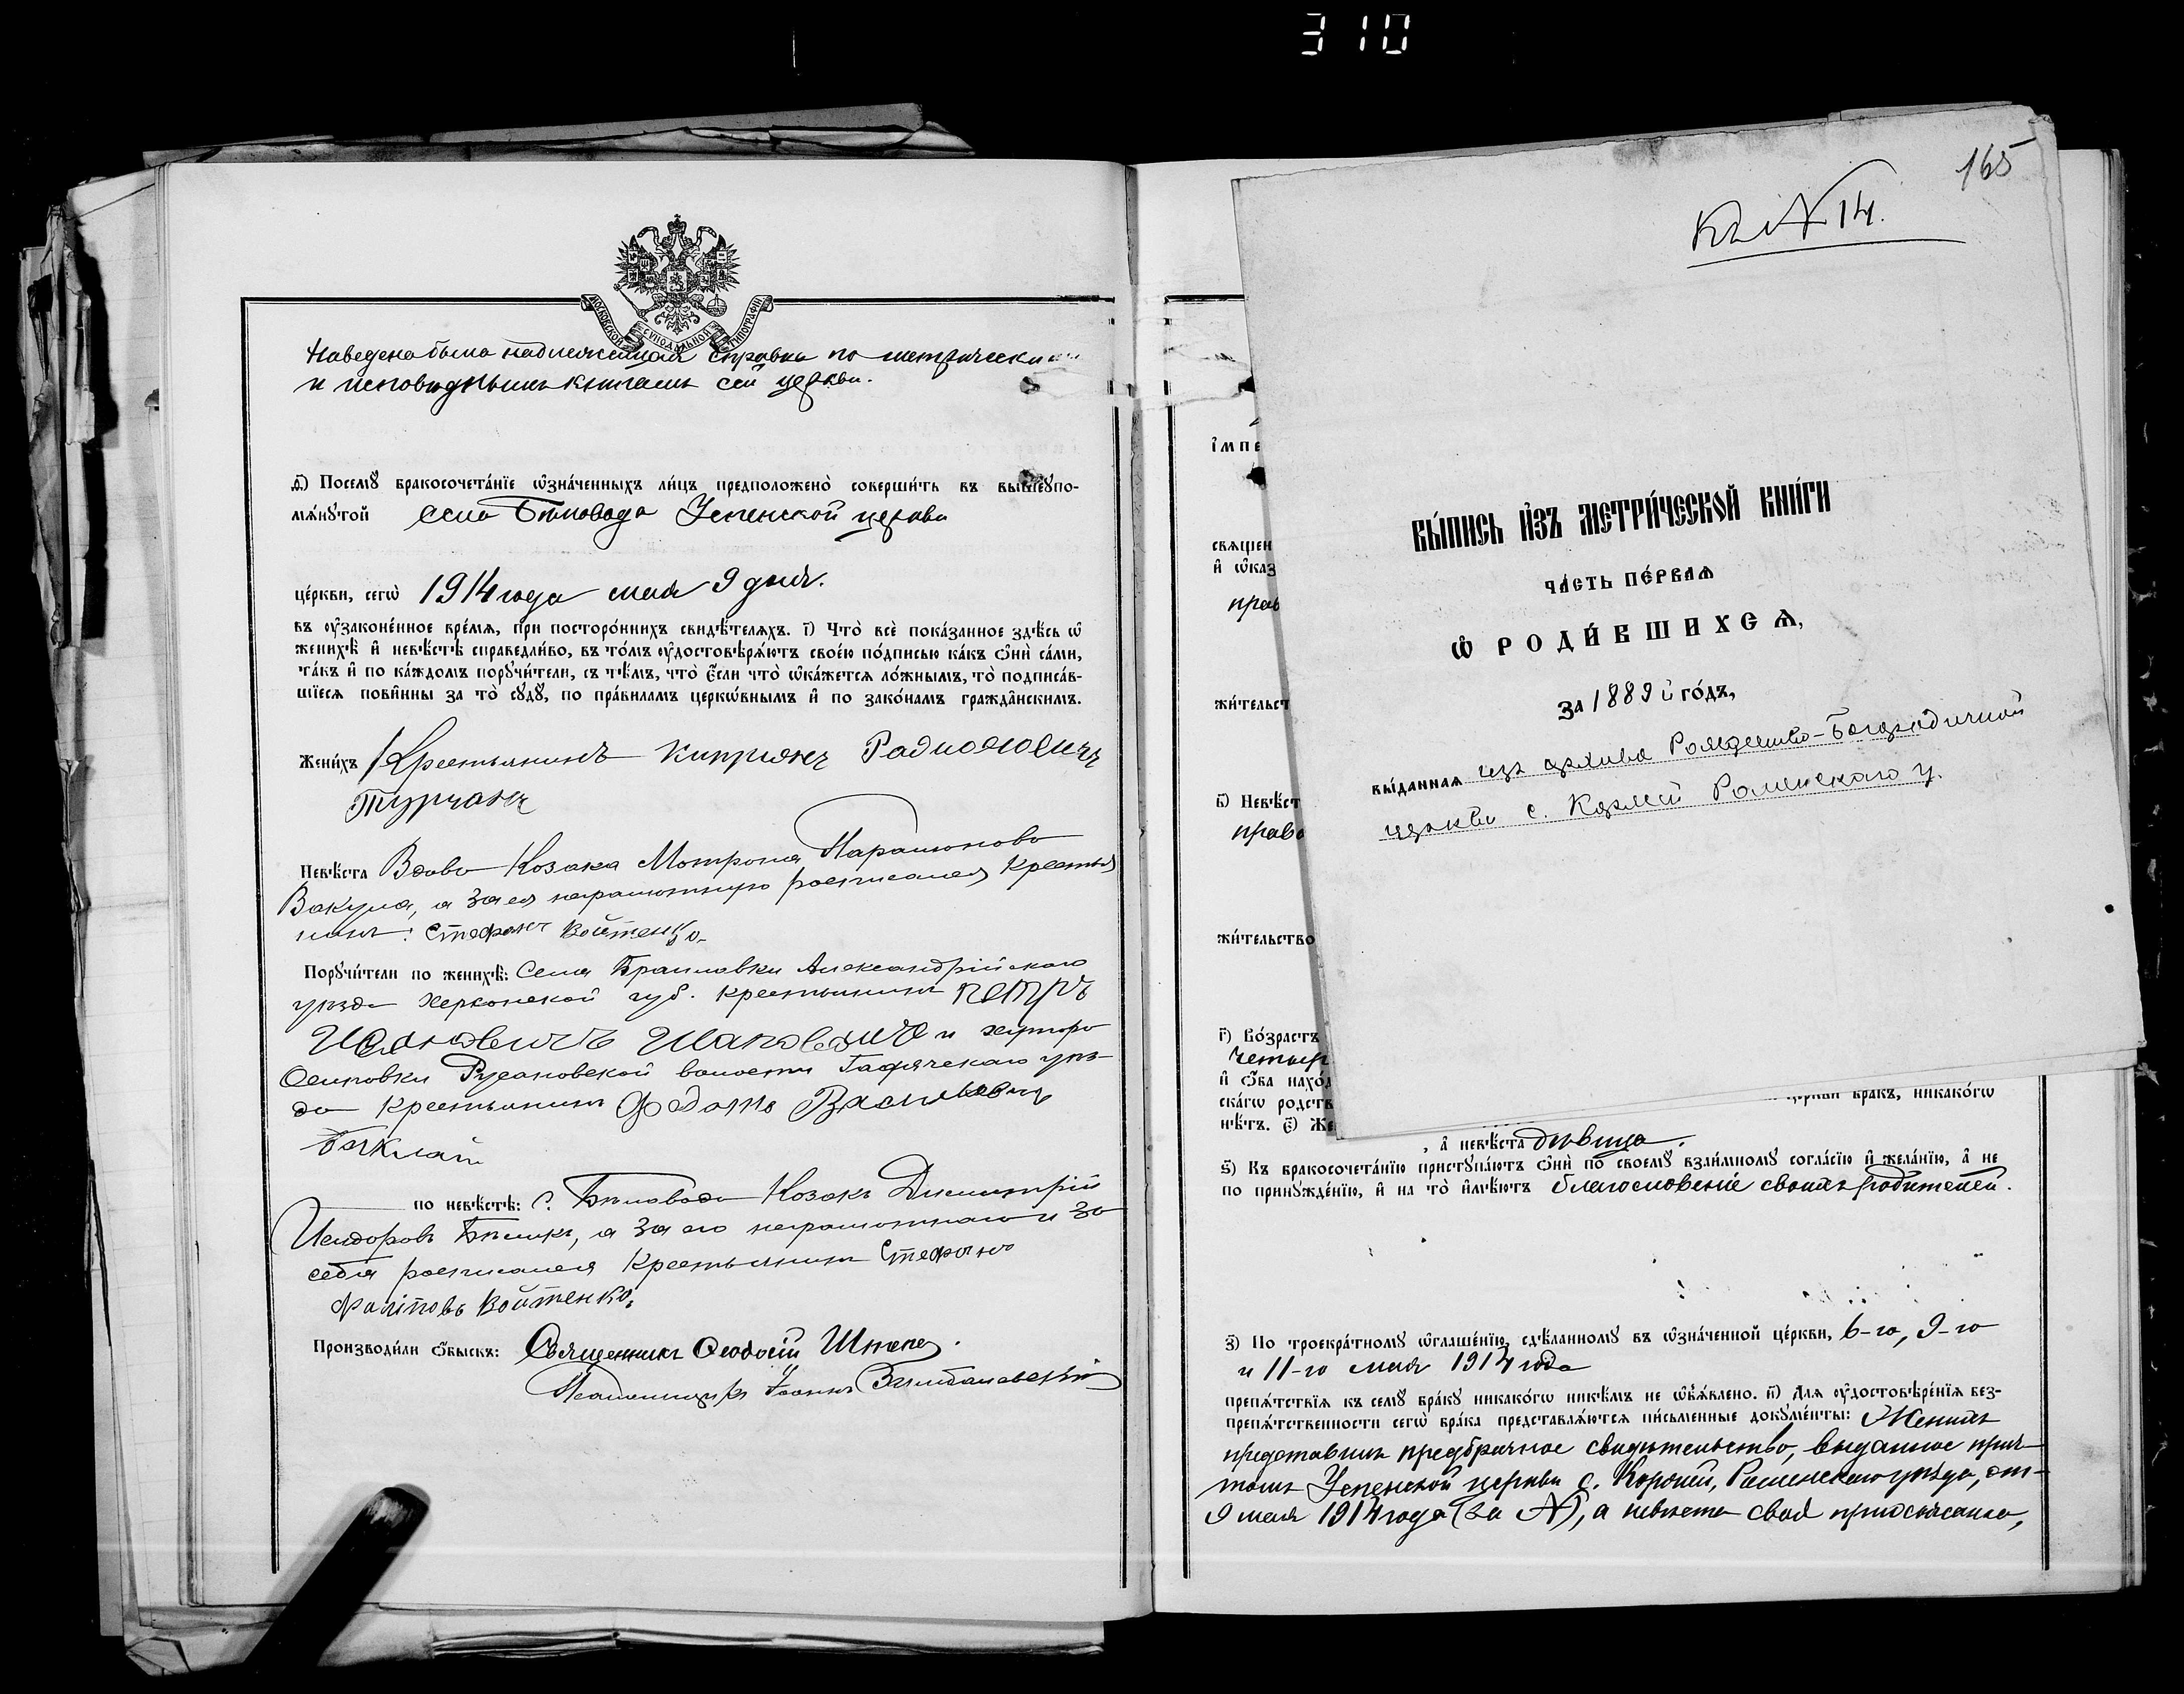 310
МОСКОВСКОЙ СУНОДАЛЬНОЙ ТИПОГРАФІИ
Наведена была надлежащая справка по метрическимъ
и исповѣднымъ книгамъ сей церкви.
д҃) Посемꙋ̀ бракосочета́нїе ѡ҆зна́ченныхъ ли́цъ предположено̀ соверши́ть въ вышеꙋпо-
мѧ́нꙋтой села Бѣловода Успенской церкви
це́ркви, сегѡ̀ 1914 года мая 9 дня.
въ ѹ҆законе́нное вре́мѧ, при посторо́ннихъ свидѣ́телѧхъ. і҃) Что̀ всѐ пока́занное здѣ́сь ѡ҆
женихѣ̀ и҆ невѣ́стѣ справедли́во, въ то́мъ ѹ҆достовѣрѧ́ютъ свое́ю по́дписью ка́къ ѻ҆нѝ са́ми,
та́къ и҆ по ка́ждомъ порꙋчи́тели, съ тѣ́мъ, что̀ є҆́сли что̀ ѡ҆ка́жетсѧ ло́жнымъ, то̀ подписа́в-
шїесѧ пови́нны за то̀ сꙋдꙋ̀, по пра́виламъ церкѡ́внымъ и҆ по зако́намъ гражда́нскимъ.
Жени́хъ Крестьянинъ Киприянъ Радионовичъ
Турчанъ
Невѣ́ста Вдова Козака Мотрона Парамонова
Вакула, а за ея неграмотную росписался Крестья
нинъ: Стефанъ Войтенко.
Порꙋчи́тели по женихѣ̀: Села Браиловки Александрійскаго
уѣзда Херсонской губ. крестьянинъ Петръ
и хутора
Осиповки Русановской волости Гадячскаго уѣз-
да Крестьянинъ Федотъ Васильевичъ
Баклай
по невѣ́стѣ: С. Бѣловода Козакъ Димитрій
Исидоровъ Бѣликъ, а за его неграмотнаго и за
себя росписался Крестьянинъ Стефанъ
Войтенко.
Производи́ли ѻ҆́быскъ: Священникъ Ѳеодосій
Псаломщикъ Іоаннъ
165
Къ № 14.
ВЫ́ПИСЬ И҆ЗЪ МЕТРИ́ЧЕСКОЙ КНИ́ГИ
ЧА́СТЬ ПЕ́РВАѦ
Ѡ҆ РОДИ́ВШИХСѦ,
за 1889 й го́дъ,
вы́даннаѧ изъ архива Рождество-Богородичной
церкви с. Роменскаго у.
і҆мпе
свѧщен
и҆ ѡ҆каз
прав
жи́тельст
в҃) Невѣ́ст
право
жи́тельство
г҃) Во́зрастъ
четыр
и҆ ѻ҆́ба нахо́д
скагѡ родств
нѣ́тъ. є҃) Же
це́ркви бракъ, никако́гѡ
, а҆ невѣ́ста дѣвица.
ѕ҃) Къ бракосочета́нїю пристꙋпа́ютъ ѻ҆нѝ по своемꙋ̀ взаи́мномꙋ согла́сїю и҆ жела́нїю, а҆ не
по принꙋжде́нїю, и҆ на то̀ и҆мѣ́ютъ благословеніе своихъ родителей.
з҃) По троекра́тномꙋ ѡ҆глаше́нїю, сдѣ́ланномꙋ въ ѡ҆зна́ченной це́ркви, 6-го, 9-го
и 11-го мая 1914 года
препѧ́тствїѧ къ семꙋ̀ бра́кꙋ никако́гѡ никѣ́мъ не ѡ҆б̾ѧ́влено. и҃) Длѧ ѹ҆достовѣре́нїѧ без-
препѧ́тственности сегѡ̀ бра́ка представлѧ́ютсѧ пи́сьменные докꙋме́нты: Женихъ
представилъ предбрачное свидѣтельство, выданное прич-
томъ Успенской церкви с. Роменскаго уѣзда, отъ
9 мая 1914 года (за №), а невѣста своя прихожанка,